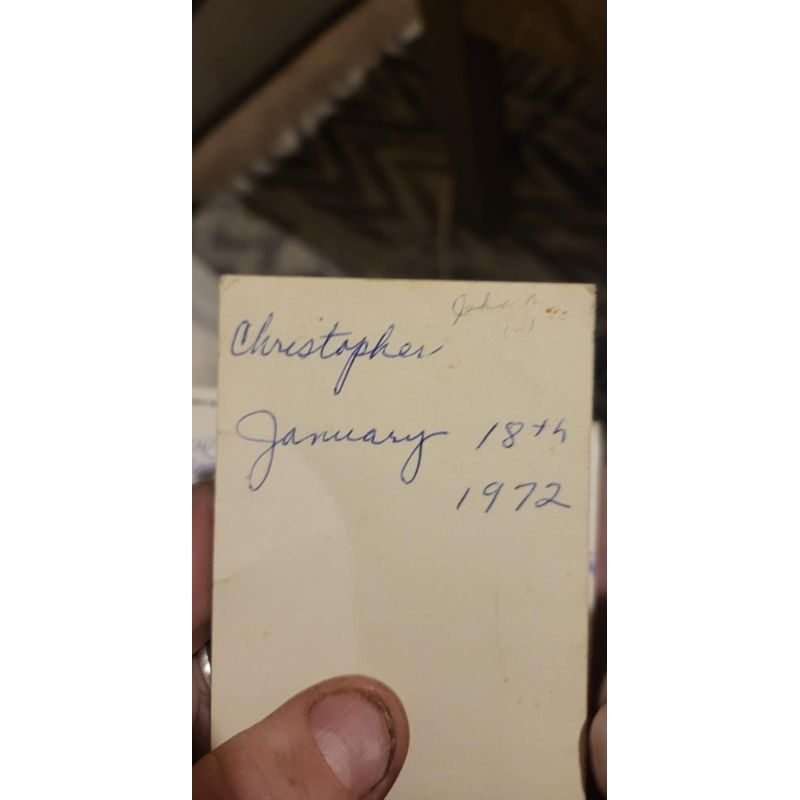 John
Christopher
January 18th
1972